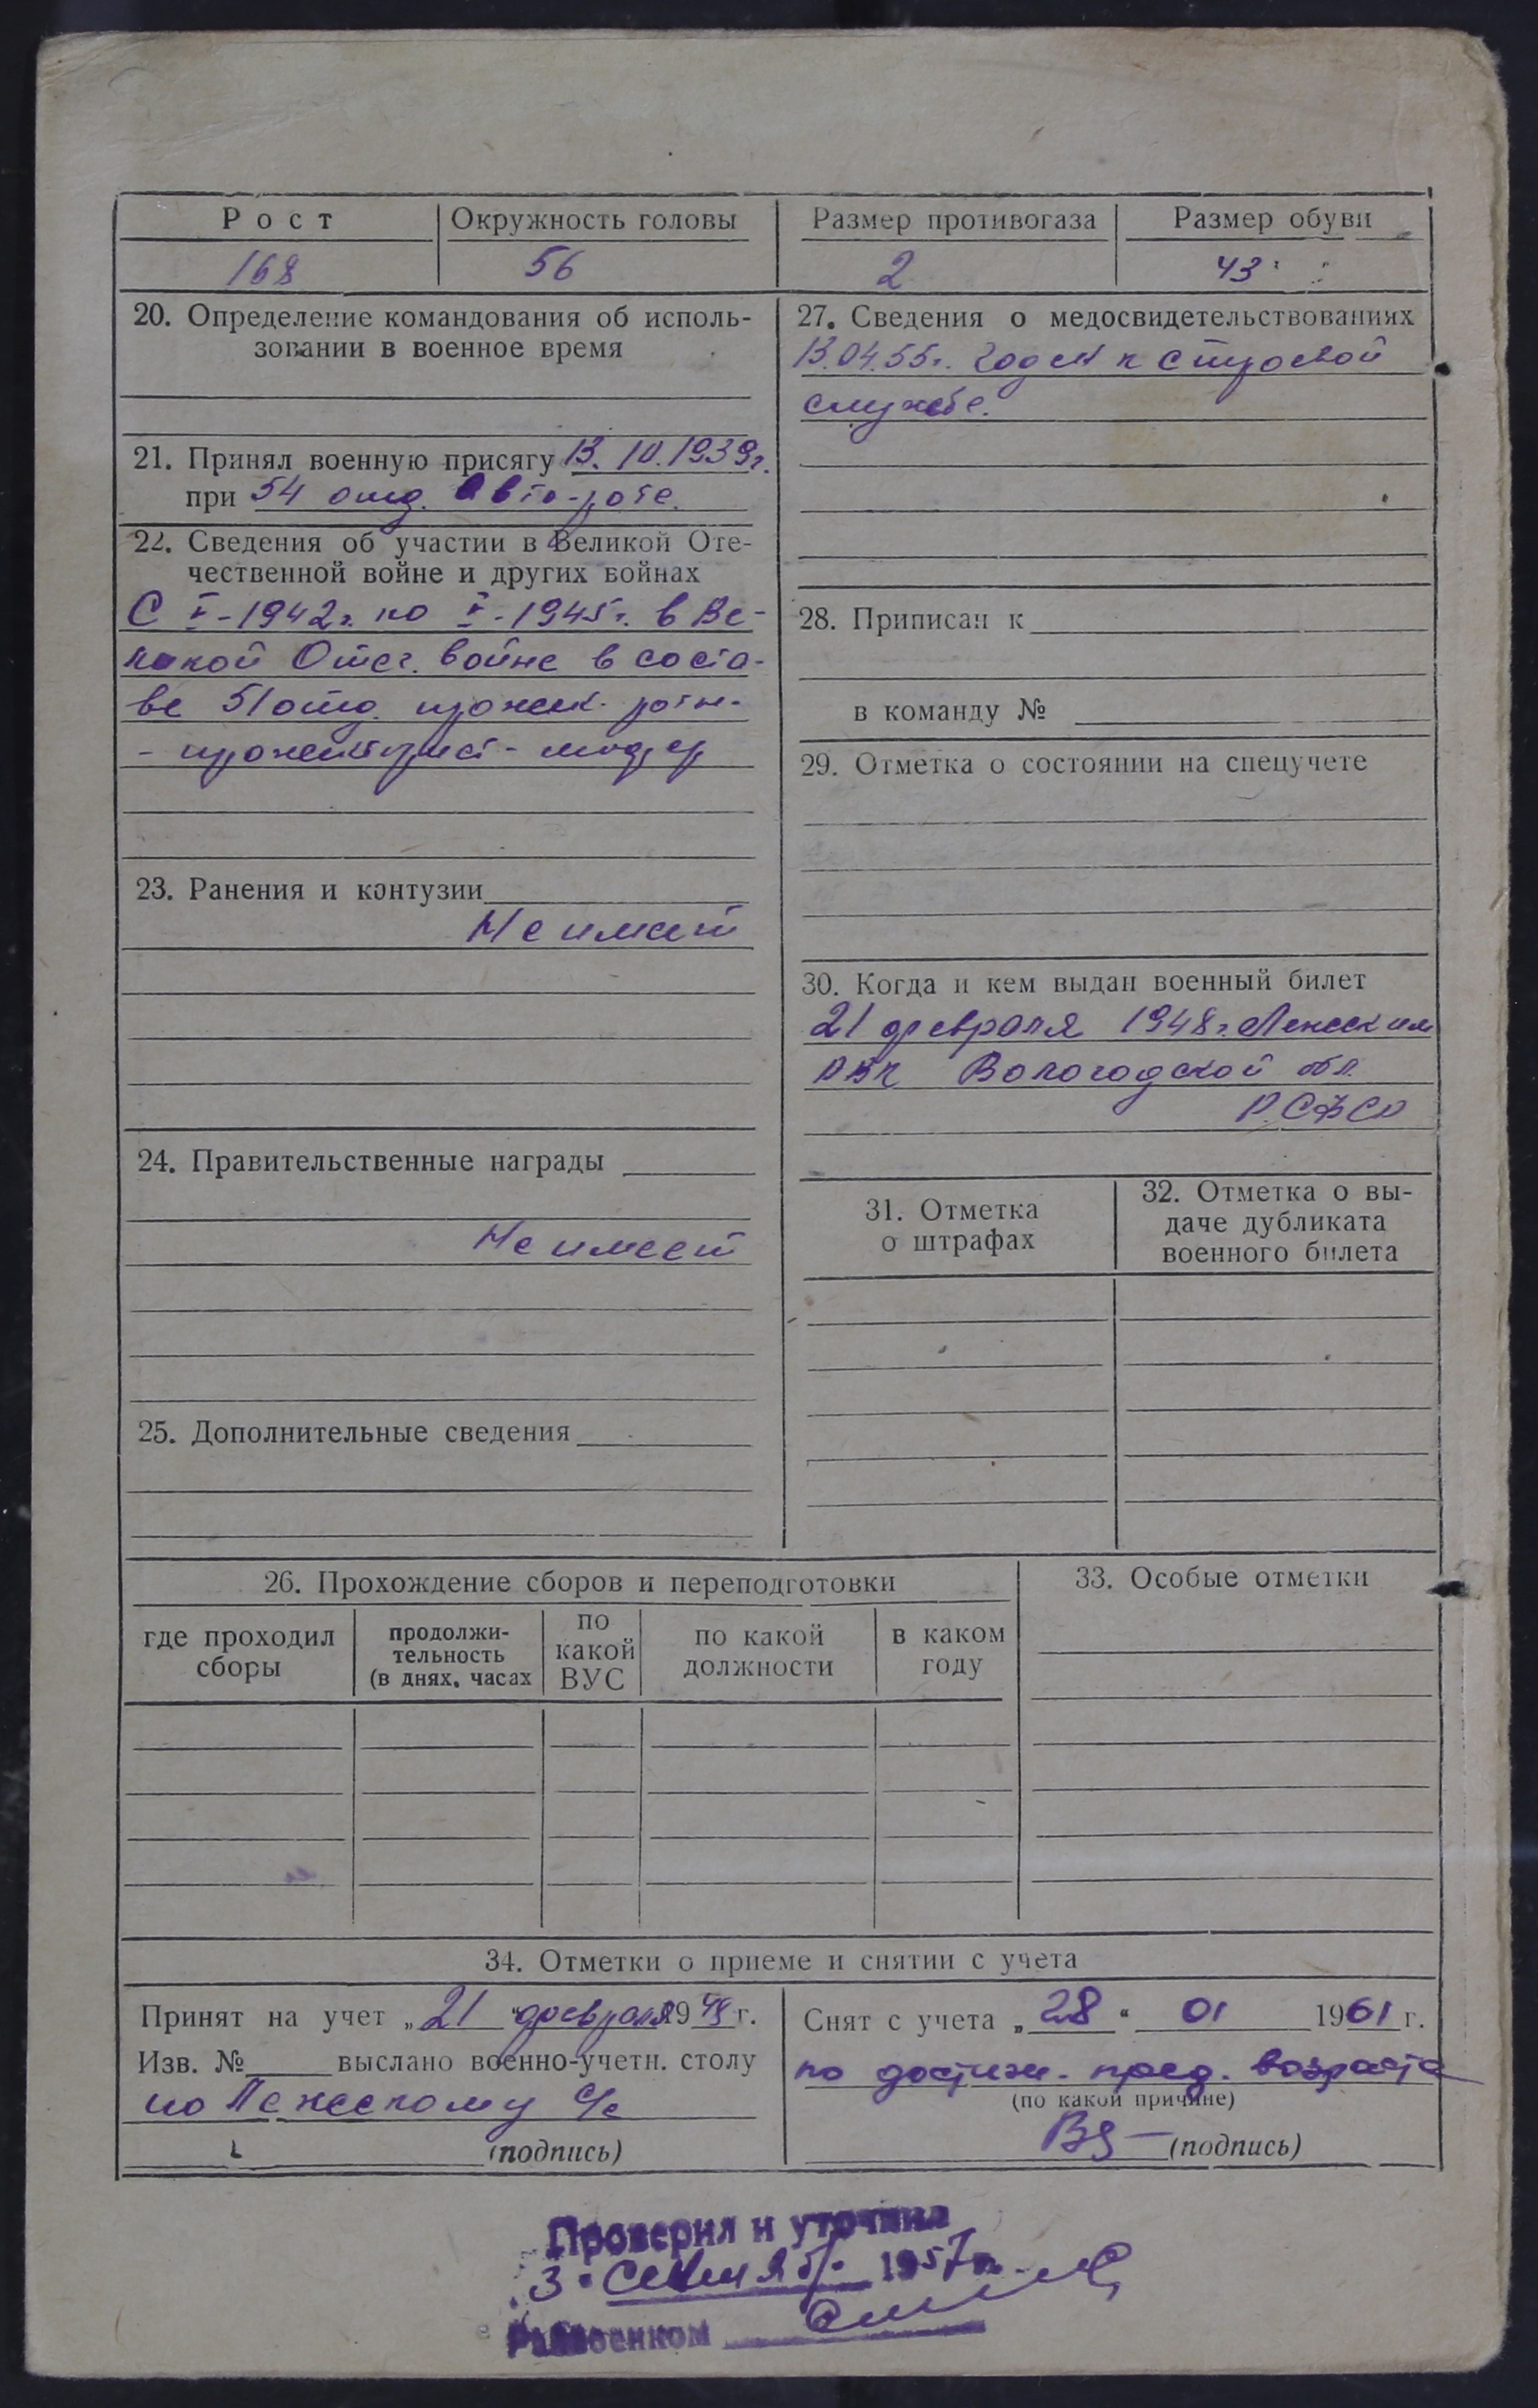 Рост Окружность головы Размер противогаза Размер обуви
168 56 2 43
20. Определение командования об исполь-
зовании в военное время
21. Принял военную присягу 13.10.1939г.
при 54 отд. авто-роте.
22. Сведения об участии в Великой Оте-
чественной войне и других войнах
С V-1942г. по V-1945г. в Ве-
ликой Отеч. войне в соста-
ве 51 отд. прожек. роты-
- прожекторист-
23. Ранения и контузии
Не имеет
24. Правительственные награды
Не имеет
25. Дополнительные сведения
27. Сведения о медосвидетельствованиях
13.04.55г. Годен к строевой
службе.
28. Приписан к
в команду №
29. Отметка о состоянии на спецучете
30. Когда и кем выдан военный билет
21 февраля 1948г.
РВК Вологодской обл.
РСФСР
31. Отметка
о штрафах
32. Отметка о вы-
даче дубликата
военного билета
26. Прохождение сборов и переподготовки
где проходил
сборы
продолжи-
тельность
(в днях, часах
по
какой
ВУС
по какой
должности
в каком
году
33. Особые отметки
34. Отметки о приеме и снятии с учета
Принят на учет „21“ февраля 1948 г.
Изв. № выслано военно-учетн. столу
по с/с
(подпись)
Снят с учета „28“ 01 1961 г.
по достиж. пред. возраста
(по какой причине)
(подпись)
Проверил и уточнил
„3“ сентяб. 1957 г.
Райвоенком